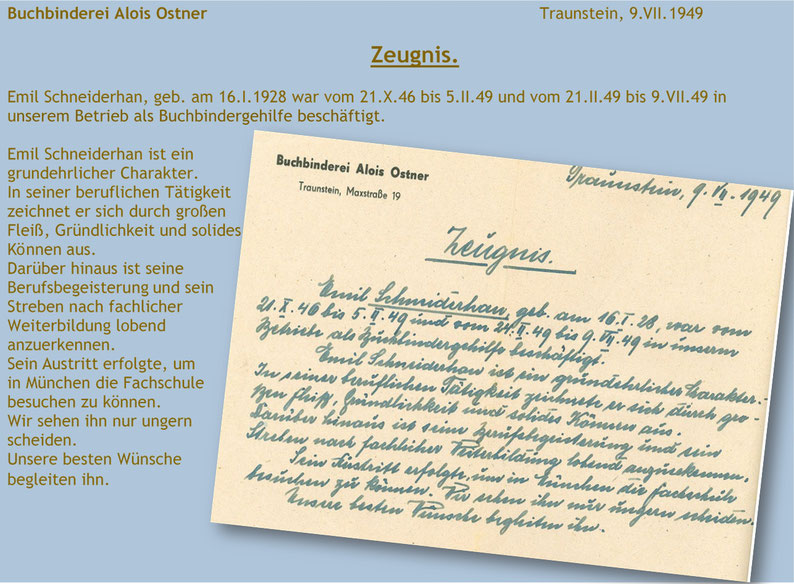 Buchbinderei Alois Ostner Traunstein, 9.VII.1949
Zeugnis.
Emil Schneiderhan, geb. am 16.I.1928 war vom 21.X.46 bis 5.II.49 und vom 21.II.49 bis 9.VII.49 in
unserem Betrieb als Buchbindergehilfe beschäftigt.
Emil Schneiderhan ist ein
grundehrlicher Charakter.
In seiner beruflichen Tätigkeit
zeichnet er sich durch großen
Fleiß, Gründlichkeit und solides
Können aus.
Darüber hinaus ist seine
Berufsbegeisterung und sein
Streben nach fachlicher
Weiterbildung lobend
anzuerkennen.
Sein Austritt erfolgte, um
in München die Fachschule
besuchen zu können.
Wir sehen ihn nur ungern
scheiden.
Unsere besten Wünsche
begleiten ihn.
Buchbinderei Alois Ostner
Traunstein, Maxstraße 19
Traunstein, 9. VII. 1949
Zeugnis.
Emil Schmiderhan, geb. am 16. I. 28, war vom
21. X. 46 bis 5. II. 49 und vom 21. II. 49 bis 9. VII. 49 in unserem
Betriebe als Buchbindergehilfe beschäftigt.
Emil Schmiderhan ist ein grundehrlicher Charakter.
In seiner beruflichen Tätigkeit zeichnete er sich durch gro-
ßen Fleiß, Gründlichkeit und solides Können aus.
Darüber hinaus ist seine Berufsbegeisterung und sein
Streben nach fachlicher Weiterbildung lobend anzuerkennen.
Sein Austritt erfolgte, um in München die Fachschule
besuchen zu können. Wir sehen ihn nur ungern scheiden.
Unsere besten Wünsche begleiten ihn.